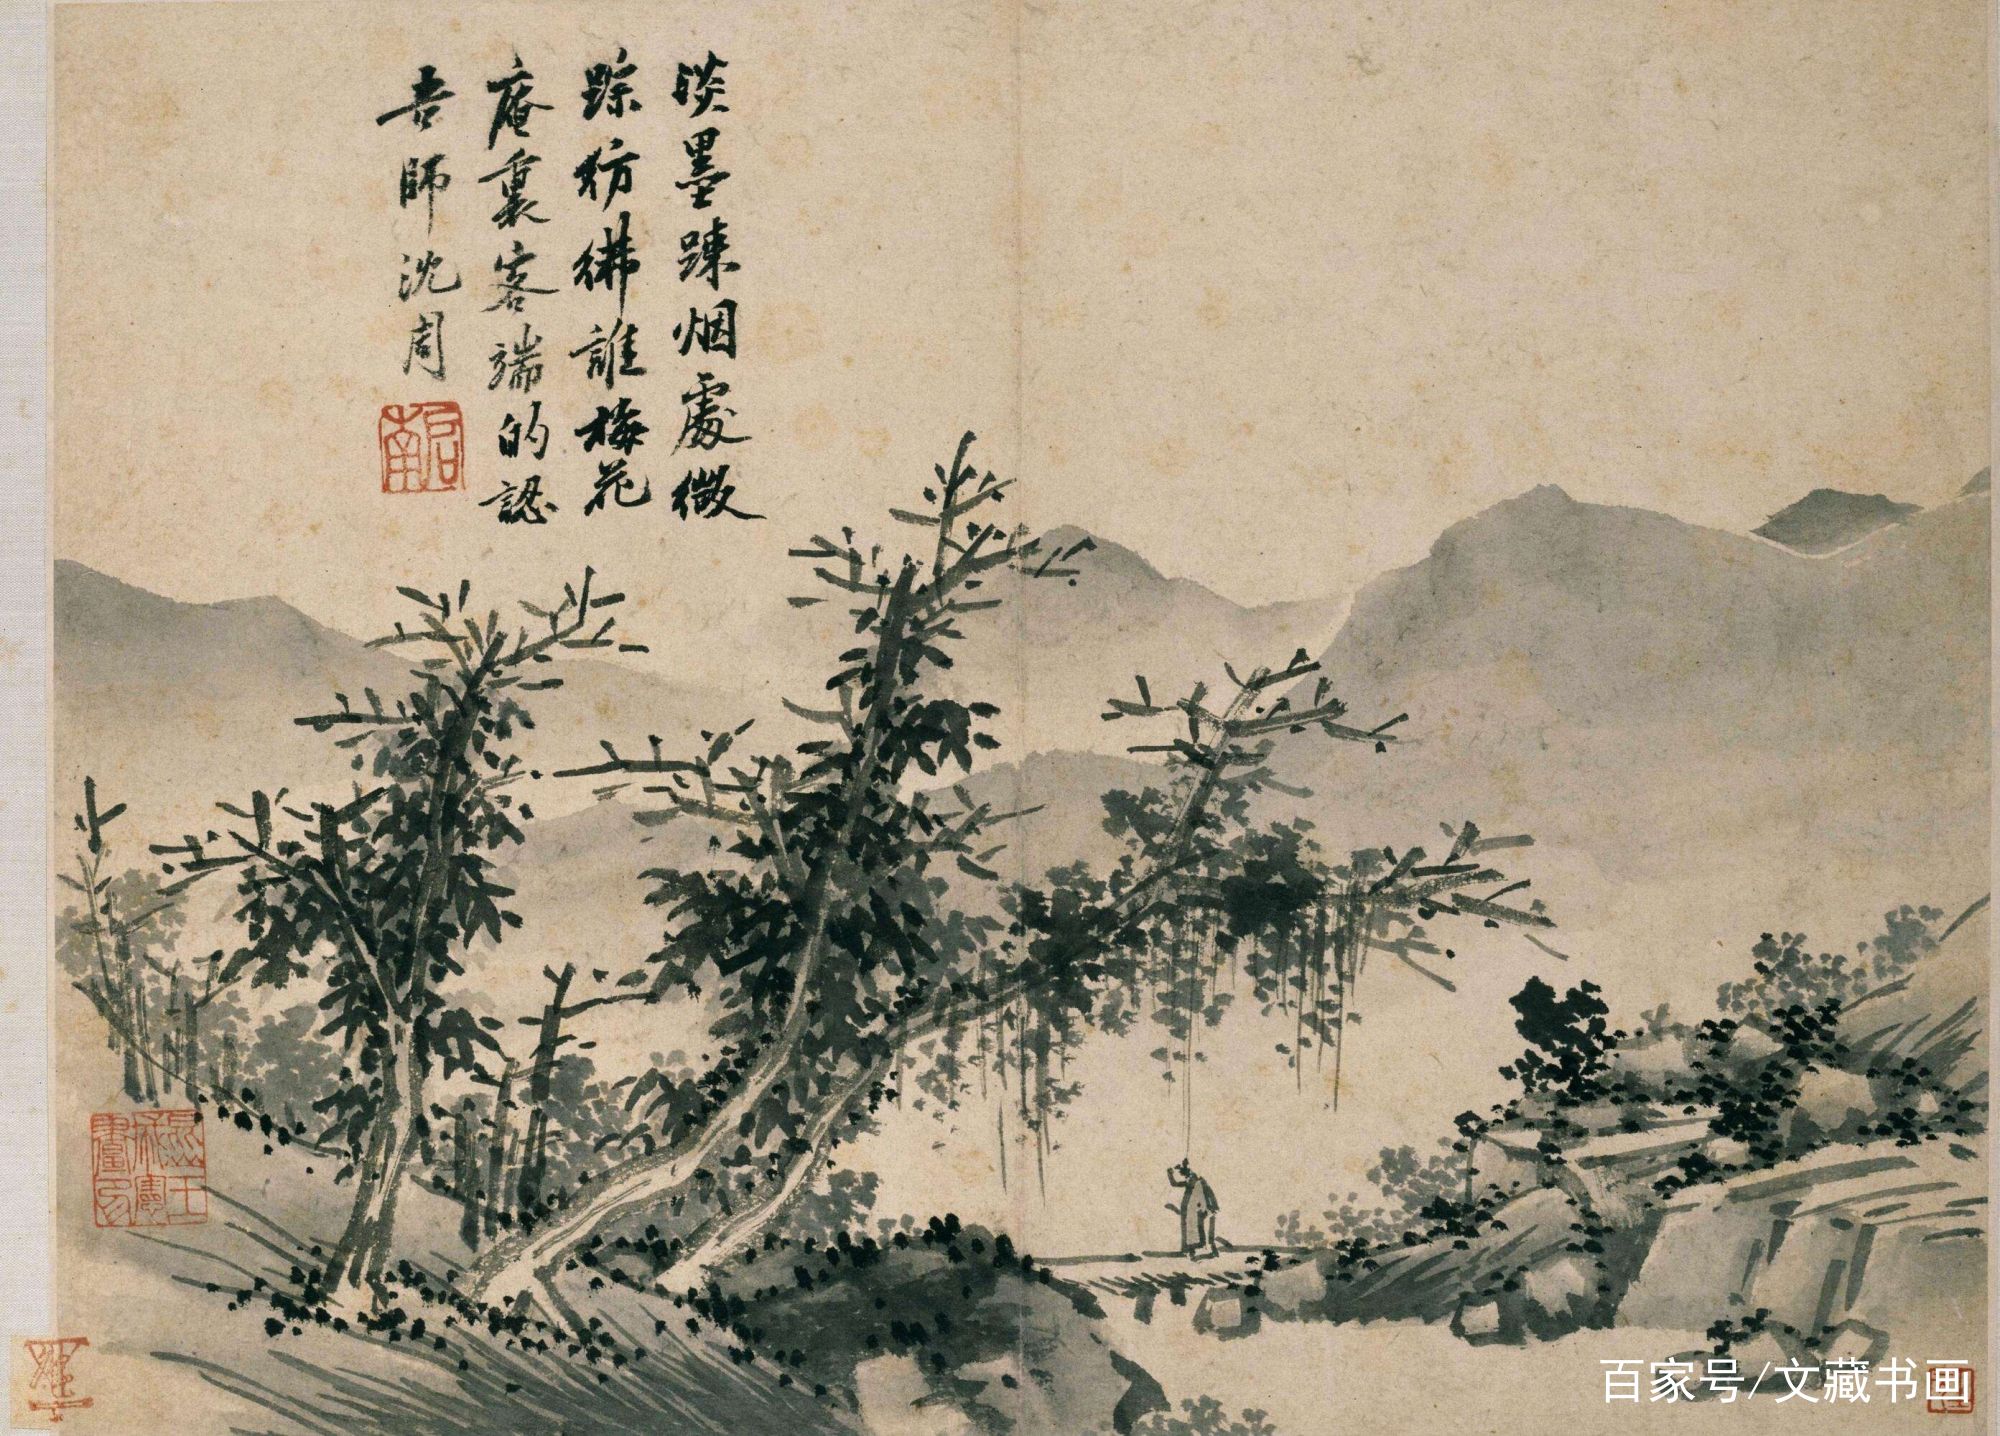 淡墨踈烟處微
踪彷彿誰梅花
庵裏客端的認
吾師沈周
啓南
百家号/文藏书画